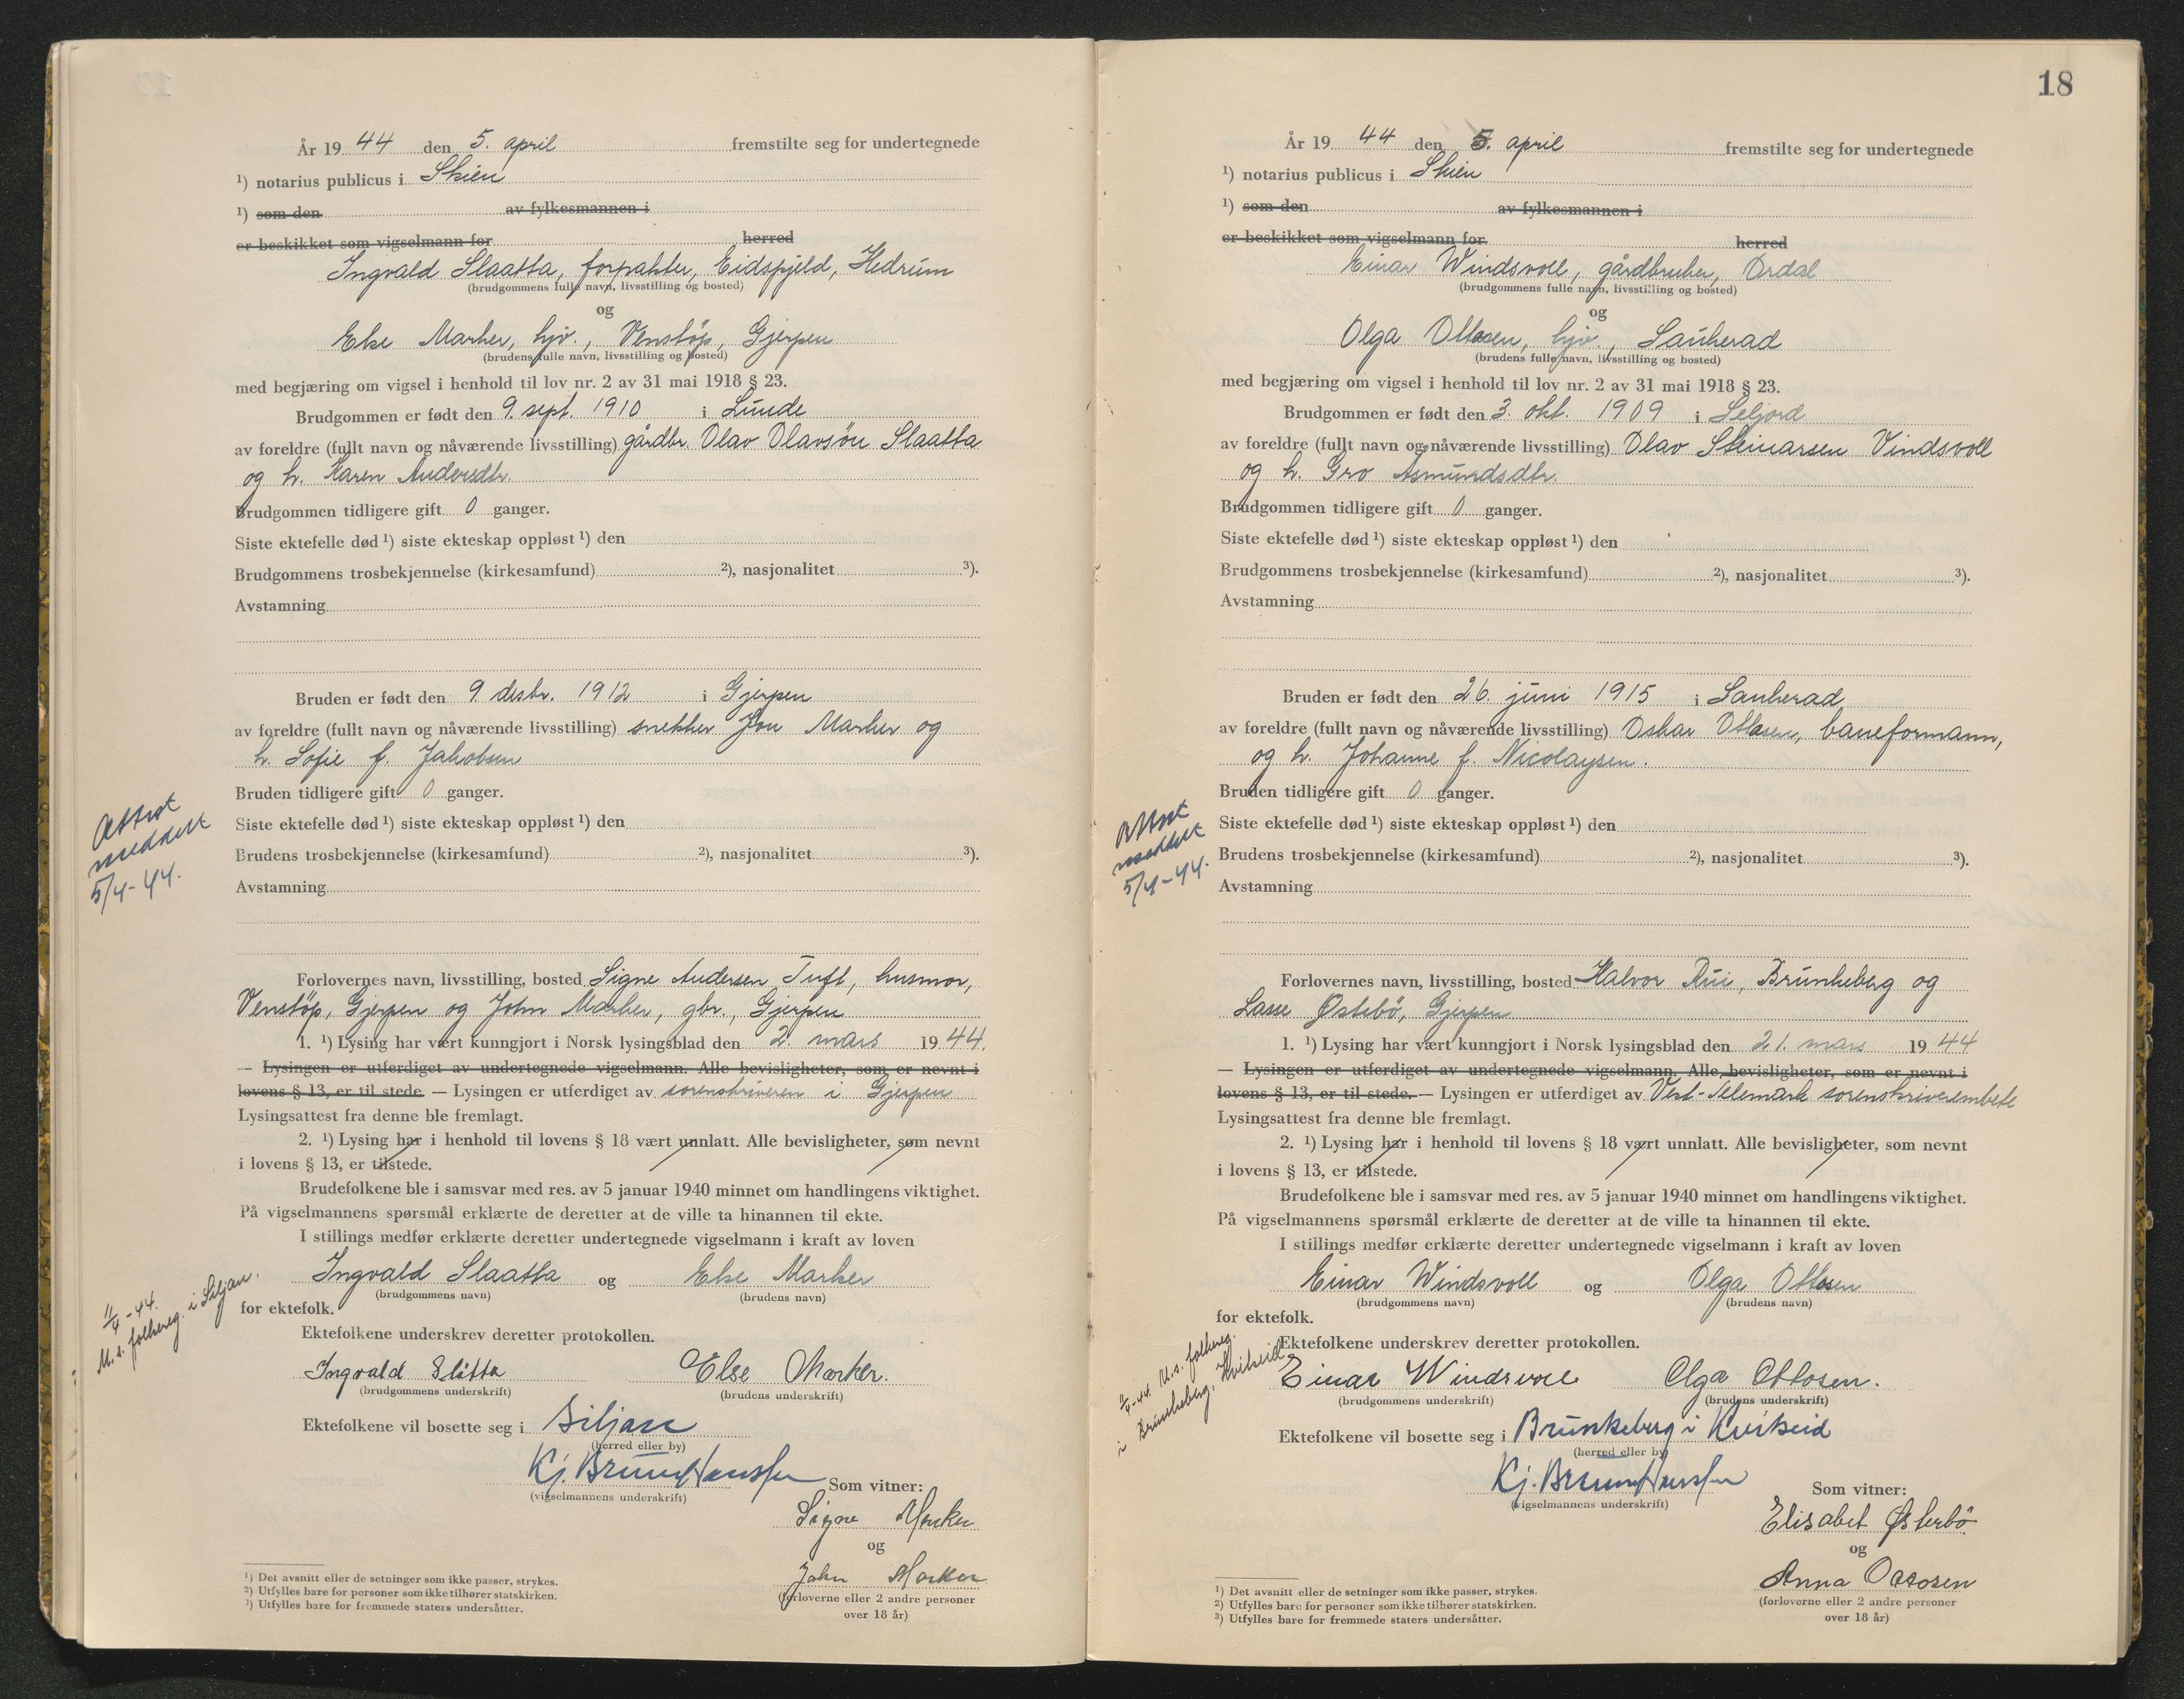 År 19 44 den 5. april fremstilte seg for undertegnede
¹) notarius publicus i Skien
¹) som den av fylkesmannen i
er beskikket som vigselmann for herred
Ingvald Slaatta, forpakter, Eidsfjeld, Hedrum
(brudgommens fulle navn, livsstilling og bosted)
og
Else Marker, hjv., Venstöp, Gjerpen
(brudens fulle navn, livsstilling og bosted)
med begjæring om vigsel i henhold til lov nr. 2 av 31 mai 1918 § 23.
Brudgommen er født den 9. sept. 1910 i Lunde
av foreldre (fullt navn og nåværende livsstilling) gårdbr. Olav Olavsön Slaatta
og h. Karen Andersdtr.
Brudgommen tidligere gift 0 ganger.
Siste ektefelle død ¹) siste ekteskap oppløst ¹) den
Brudgommens trosbekjennelse (kirkesamfund) ²), nasjonalitet ³).
Avstamning
Bruden er født den 9 desbr. 1912 i Gjerpen
av foreldre (fullt navn og nåværende livsstilling) snekker Jon Marker og
h. Sofie f. Jakobsen
Bruden tidligere gift 0 ganger.
Siste ektefelle død ¹) siste ekteskap oppløst ¹) den
Brudens trosbekjennelse (kirkesamfund) ²), nasjonalitet ³).
Avstamning
Attest
meddelt
5/4-44.
Forlovernes navn, livsstilling, bosted Signe Andersen Tuft, husmor,
Venstöp, Gjerpen og John Marker, gbr., Gjerpen
1. ¹) Lysing har vært kunngjort i Norsk lysingsblad den 2. mars 19 44.
— Lysingen er utferdiget av undertegnede vigselmann. Alle bevisligheter, som er nevnt i
lovens § 13, er til stede — Lysingen er utferdiget av sorenskriveren i Gjerpen
Lysingsattest fra denne ble fremlagt.
2. ¹) Lysing har i henhold til lovens § 18 vært unnlatt. Alle bevisligheter, som nevnt
i lovens § 13, er tilstede.
Brudefolkene ble i samsvar med res. av 5 januar 1940 minnet om handlingens viktighet.
På vigselmannens spørsmål erklærte de deretter at de ville ta hinannen til ekte.
I stillings medfør erklærte deretter undertegnede vigselmann i kraft av loven
Ingvald Slaatta og Else Marker
(brudgommens navn) (brudens navn)
for ektefolk.
11/4-44.
M. s. folkereg. i Siljan.
Ektefolkene underskrev deretter protokollen.
Ingvald Slåtta Else Marker.
(brudgommens underskrift) (brudens underskrift)
Ektefolkene vil bosette seg i Siljan
(herred eller by)
Kj. Bruun Hanssen
(vigselmannens underskrift)
Som vitner:
Signe Marker
og
John Marker
(forloverne eller 2 andre personer
over 18 år)
¹) Det avsnitt eller de setninger som ikke passer, strykes.
²) Utfylles bare for personer som ikke tilhører statskirken.
³) Utfylles bare for fremmede staters undersåtter.
18
År 19 44 den 5. april fremstilte seg for undertegnede
¹) notarius publicus i Skien
¹) som den av fylkesmannen i
er beskikket som vigselmann for herred
Einar Windsvoll, gårdbruker, Ordal
(brudgommens fulle navn, livsstilling og bosted)
og
Olga Ottosen, hjv., Sauherad
(brudens fulle navn, livsstilling og bosted)
med begjæring om vigsel i henhold til lov nr. 2 av 31 mai 1918 § 23.
Brudgommen er født den 3. okt. 1909 i Seljord
av foreldre (fullt navn og nåværende livsstilling) Olav Steinarsen Vindsvoll
og h. Gro Asmundsdtr.
Brudgommen tidligere gift 0 ganger.
Siste ektefelle død ¹) siste ekteskap oppløst ¹) den
Brudgommens trosbekjennelse (kirkesamfund) ²), nasjonalitet ³).
Avstamning
Bruden er født den 26. juni 1915 i Sauherad
av foreldre (fullt navn og nåværende livsstilling) Oskar Ottosen, baneformann,
og h. Johanne f. Nicolaysen.
Bruden tidligere gift 0 ganger.
Siste ektefelle død ¹) siste ekteskap oppløst ¹) den
Brudens trosbekjennelse (kirkesamfund) ²), nasjonalitet ³).
Avstamning
Attest
meddelt
5/4-44.
Forlovernes navn, livsstilling, bosted Halvor Rui, Brunkeberg og
Lasse Østebö, Gjerpen
1. ¹) Lysing har vært kunngjort i Norsk lysingsblad den 21. mars 19 44
— Lysingen er utferdiget av undertegnede vigselmann. Alle bevisligheter, som er nevnt i
lovens § 13, er til stede. — Lysingen er utferdiget av Vest-Telemark sorenskriverembete
Lysingsattest fra denne ble fremlagt.
2. ¹) Lysing har i henhold til lovens § 18 vært unnlatt. Alle bevisligheter, som nevnt
i lovens § 13, er tilstede.
Brudefolkene ble i samsvar med res. av 5 januar 1940 minnet om handlingens viktighet.
På vigselmannens spørsmål erklærte de deretter at de ville ta hinannen til ekte.
I stillings medfør erklærte deretter undertegnede vigselmann i kraft av loven
Einar Windsvoll og Olga Ottosen
(brudgommens navn) (brudens navn)
for ektefolk.
11/4-44 M. s. folkereg.
i Brunkeberg, Kviteseid
Ektefolkene underskrev deretter protokollen.
Einar Windsvoll Olga Ottosen.
(brudgommens underskrift) (brudens underskrift)
Ektefolkene vil bosette seg i Brunkeberg i Kviteseid
(herred eller by)
Kj. Bruun Hanssen
(vigselmannens underskrift)
Som vitner:
Elisabet Østerbö
og
Anna Ottosen
(forloverne eller 2 andre personer
over 18 år)
¹) Det avsnitt eller de setninger som ikke passer, strykes.
²) Utfylles bare for personer som ikke tilhører statskirken.
³) Utfylles bare for fremmede staters undersåtter.